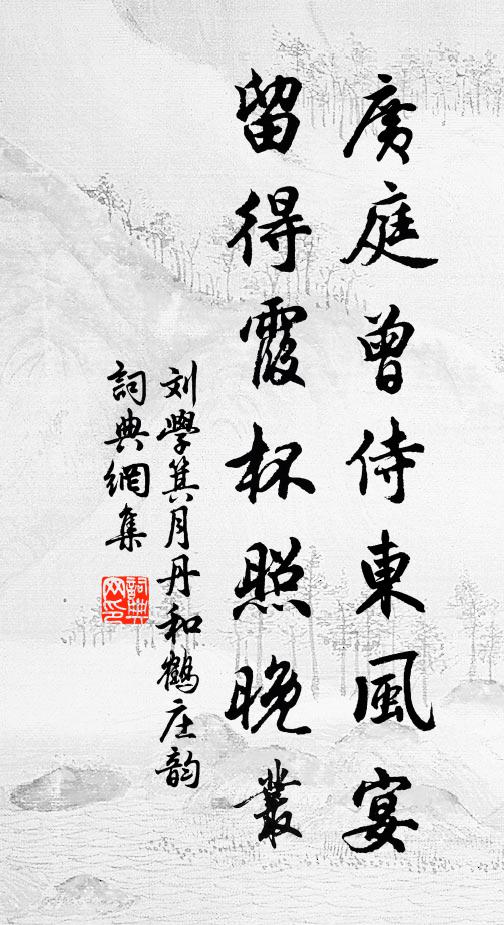 廣庭曾侍東風宴
留得霞杯照晚叢
刘學箕月丹和鶴庄韵
詞典網集
詞典網印